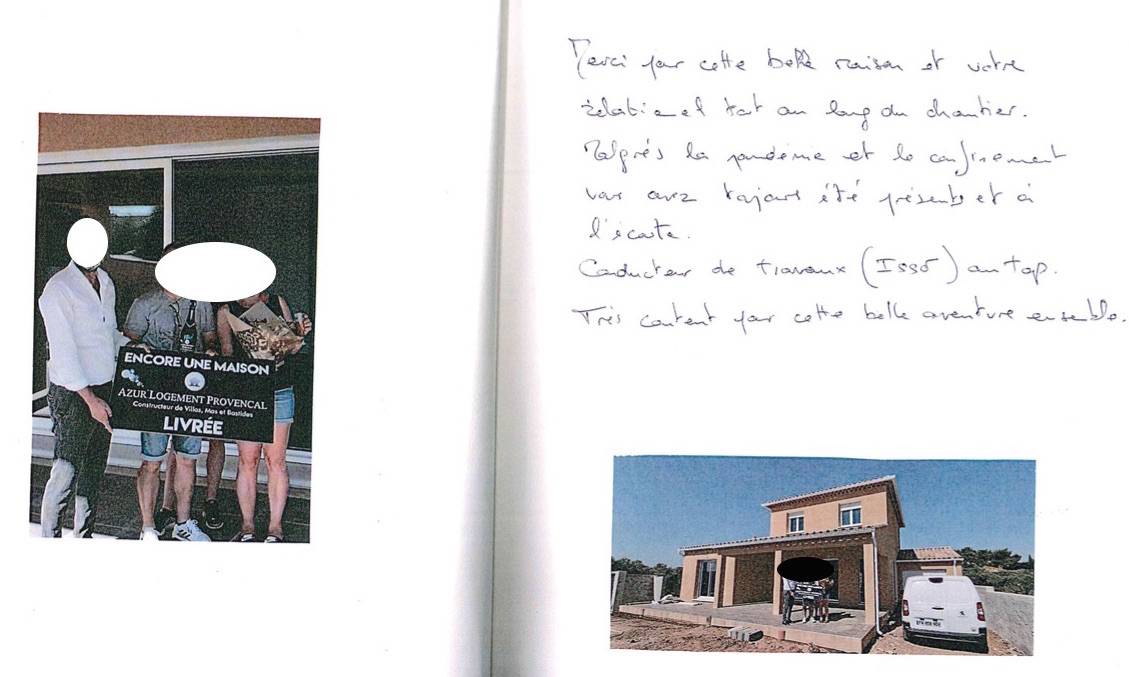 ENCORE UNE MAISON
AZUR LOGEMENT PROVENÇAL
Constructeur de Villas, Mas et Bastides
LIVRÉE
Merci pour cette belle maison et votre
relationel tout au long du chantier.
Malgrés la pandémie et le confinement
vous avez toujours été présents et à
l'écoute.
Conducteur de travaux (Issó) au top.
Très content pour cette belle aventure ensemble.